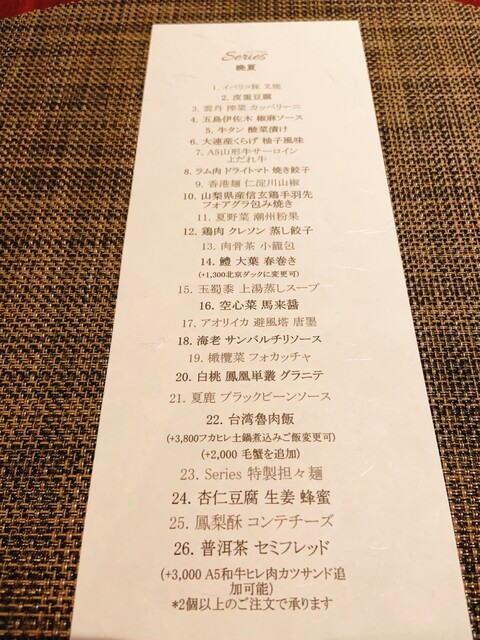 Series
晩夏
1. イベリコ豚 叉焼
2. 皮蛋豆腐
3. 雲丹 榨菜 カッペリーニ
4. 五島伊佐木 椒麻ソース
5. 牛タン 酸菜漬け
6. 大連産くらげ 柚子風味
7. A5山形牛サーロイン
よだれ牛
8. ラム肉 ドライトマト 焼き餃子
9. 香港麺 仁淀川山椒
10. 山梨県産信玄鶏手羽先
フォアグラ包み焼き
11. 夏野菜 潮州粉果
12. 鶏肉 クレソン 蒸し餃子
13. 肉骨茶 小籠包
14. 鱧 大葉 春巻き
(+1,300北京ダックに変更可)
15. 玉蜀黍 上湯蒸しスープ
16. 空心菜 馬来醤
17. アオリイカ 避風塔 唐墨
18. 海老 サンバルチリソース
19. 橄欖菜 フォカッチャ
20. 白桃 鳳凰単叢 グラニテ
21. 夏鹿 ブラックビーンソース
22. 台湾魯肉飯
(+3,800フカヒレ土鍋煮込みご飯変更可)
(+2,000 毛蟹を追加)
23. Series 特製担々麺
24. 杏仁豆腐 生姜 蜂蜜
25. 鳳梨酥 コンテチーズ
26. 普洱茶 セミフレッド
(+3,000 A5和牛ヒレ肉カツサンド追
加可能)
*2個以上のご注文で承ります